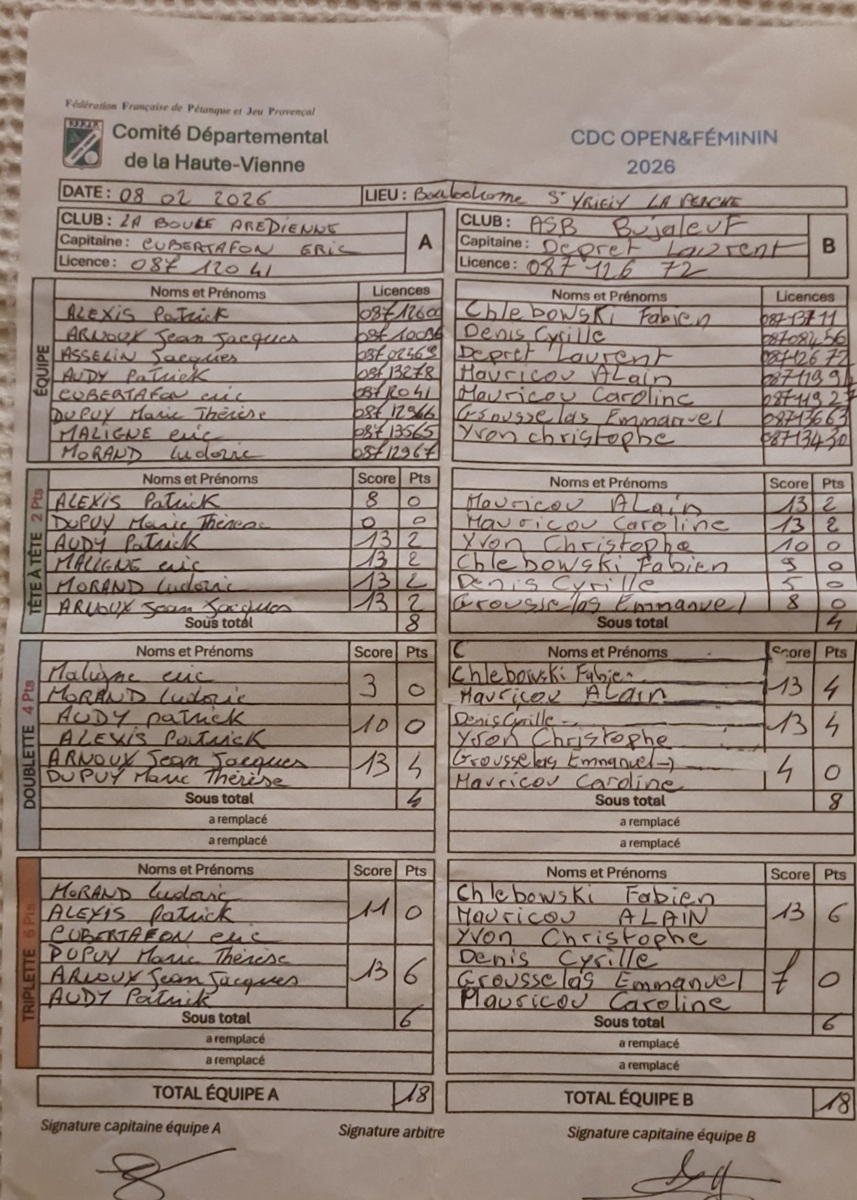 Fédération Française de Pétanque et Jeu Provençal
Comité Départemental
de la Haute-Vienne
CDC OPEN&FÉMININ
2026
DATE : 08 02 2026 LIEU : Boulodrome St YRIEIX LA PERCHE
CLUB : LA BOULE AREDIENNE
Capitaine : CUBERTAFON ERIC
Licence : 087 120 41
A
CLUB : ASB Bujaleuf
Capitaine : Depret Laurent
Licence : 087 126 72
B
ÉQUIPE
Noms et Prénoms Licences
ALEXIS Patrick
ARNOUX Jean Jacques
ASSELIN Jacques
AUDY Patrick 08713278
CUBERTAFON eric 08712041
DUPUY Marie Thérèse 08712966
MALIGNE eric 08713565
MORAND Ludovic 08712967
Noms et Prénoms Licences
Chlebowski Fabien 08713711
Denis Cyrille 08708456
Depret Laurent 08712672
Mauricou ALain
Mauricou Caroline
Grousselas Emmanuel 08713663
Yvon christophe 08713430
TÊTE À TÊTE 2 Pts
Noms et Prénoms Score Pts
ALEXIS Patrick 8 0
DUPUY Marie Thérèse 0 0
AUDY Patrick 13 2
MALIGNE eric 13 2
MORAND Ludovic 13 2
ARNOUX Jean Jacques 13 2
Sous total 8
Noms et Prénoms Score Pts
Mauricou ALain 13 2
Mauricou Caroline 13 2
Yvon Christophe 10 0
Chlebowski Fabien 9 0
Denis Cyrille 5 0
Grousselas Emmanuel 8 0
Sous total 4
DOUBLETTE 4 Pts
Noms et Prénoms Score Pts
Maligne eric 3 0
MORAND Ludovic
AUDY patrick 10 0
ALEXIS Patrick
ARNOUX Jean Jacques 13 4
DUPUY Marie Thérèse
Sous total 4
a remplacé
a remplacé
C Noms et Prénoms Score Pts
Chlebowski Fabien 13 4
Mauricou ALAin
Denis Cyrille 13 4
Yvon Christophe
Grousselas Emmanuel 4 0
Mauricou Caroline
Sous total 8
a remplacé
a remplacé
TRIPLETTE 6 Pts
Noms et Prénoms Score Pts
MORAND Ludovic
ALEXIS Patrick 11 0
CUBERTAFON eric
DUPUY Marie Thérèse
ARNOUX Jean Jacques 13 6
AUDY Patrick
Sous total 6
a remplacé
a remplacé
Noms et Prénoms Score Pts
Chlebowski Fabien
Mauricou ALAIN 13 6
Yvon Christophe
Denis Cyrille
Grousselas Emmanuel 7 0
Mauricou Caroline
Sous total 6
a remplacé
a remplacé
TOTAL ÉQUIPE A 18
TOTAL ÉQUIPE B 18
Signature capitaine équipe A
Signature arbitre
Signature capitaine équipe B